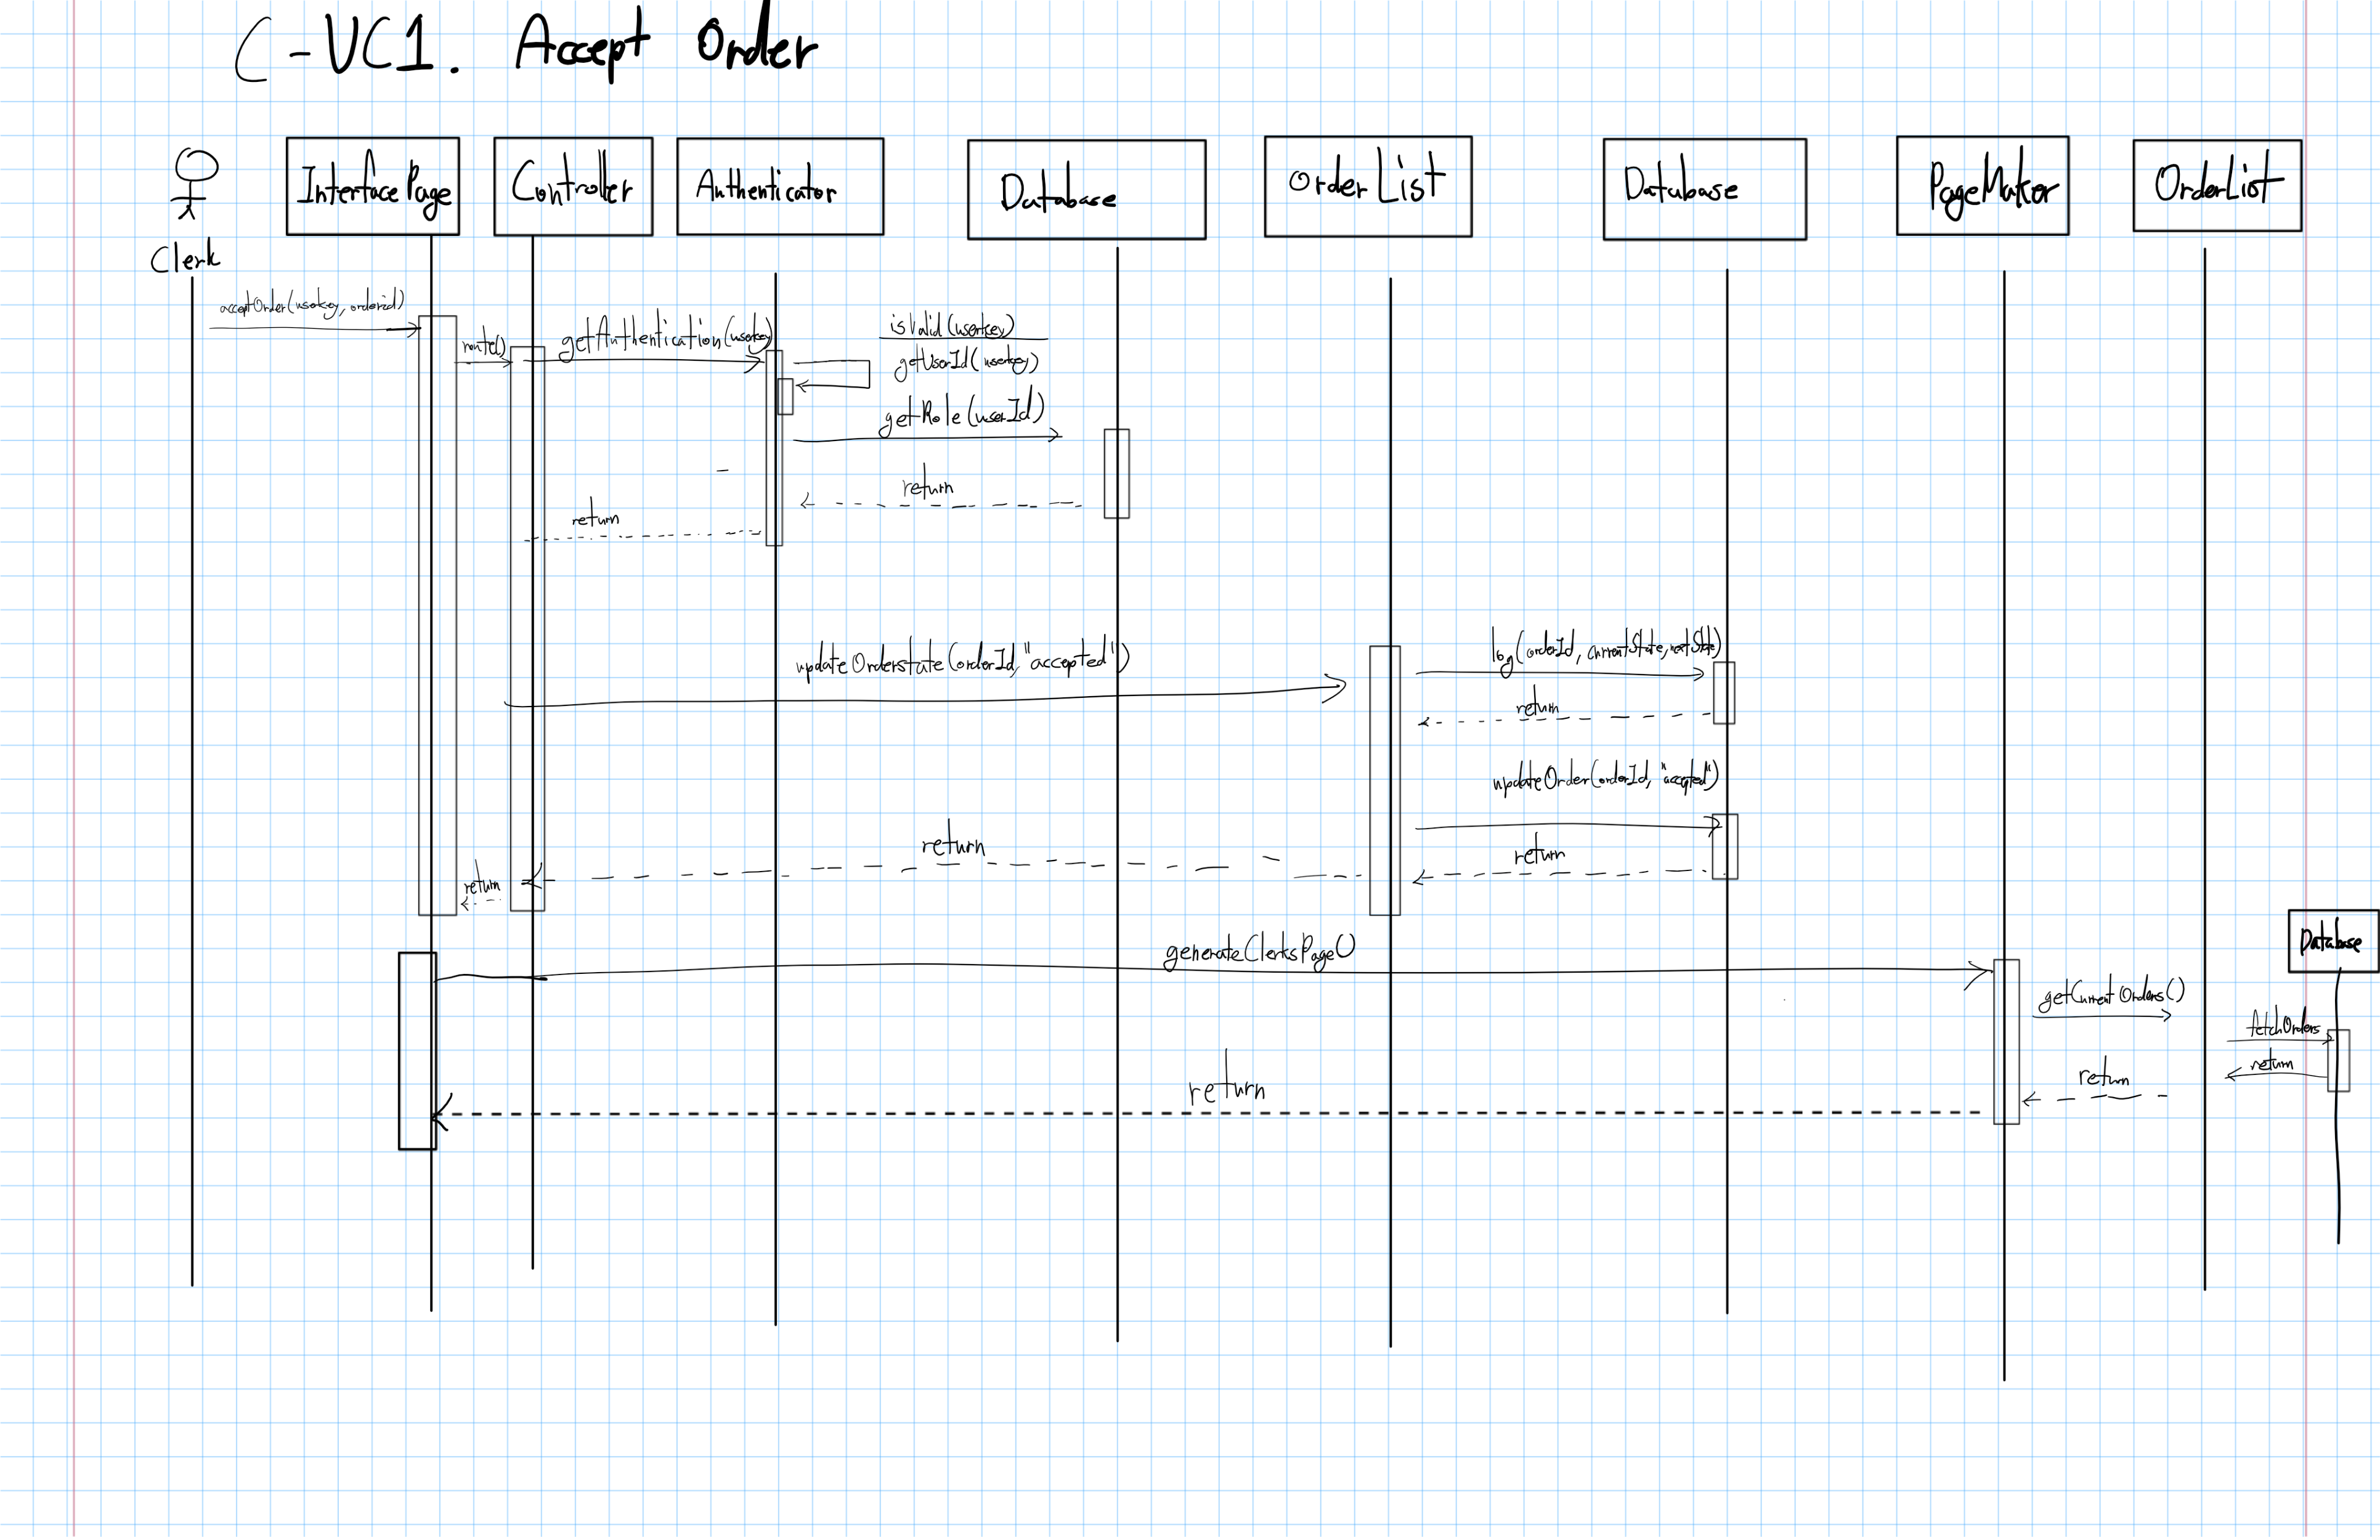 C-UC1. Accept Order
Clerk
InterfacePage
Controller
Authenticator
Database
OrderList
Database
PageMaker
OrderList
acceptOrder(userkey, orderid)
route()
getAuthentication(userkey)
isValid(userkey)
getUserId(userkey)
getRole(userId)
return
return
updateOrderstate(orderId,"accepted")
log(orderId, currentState, nextState)
return
updateOrder(orderId, "accepted")
return
return
return
generateClerksPage()
Database
getCurrentOrders()
fetchOrders
return
return
return